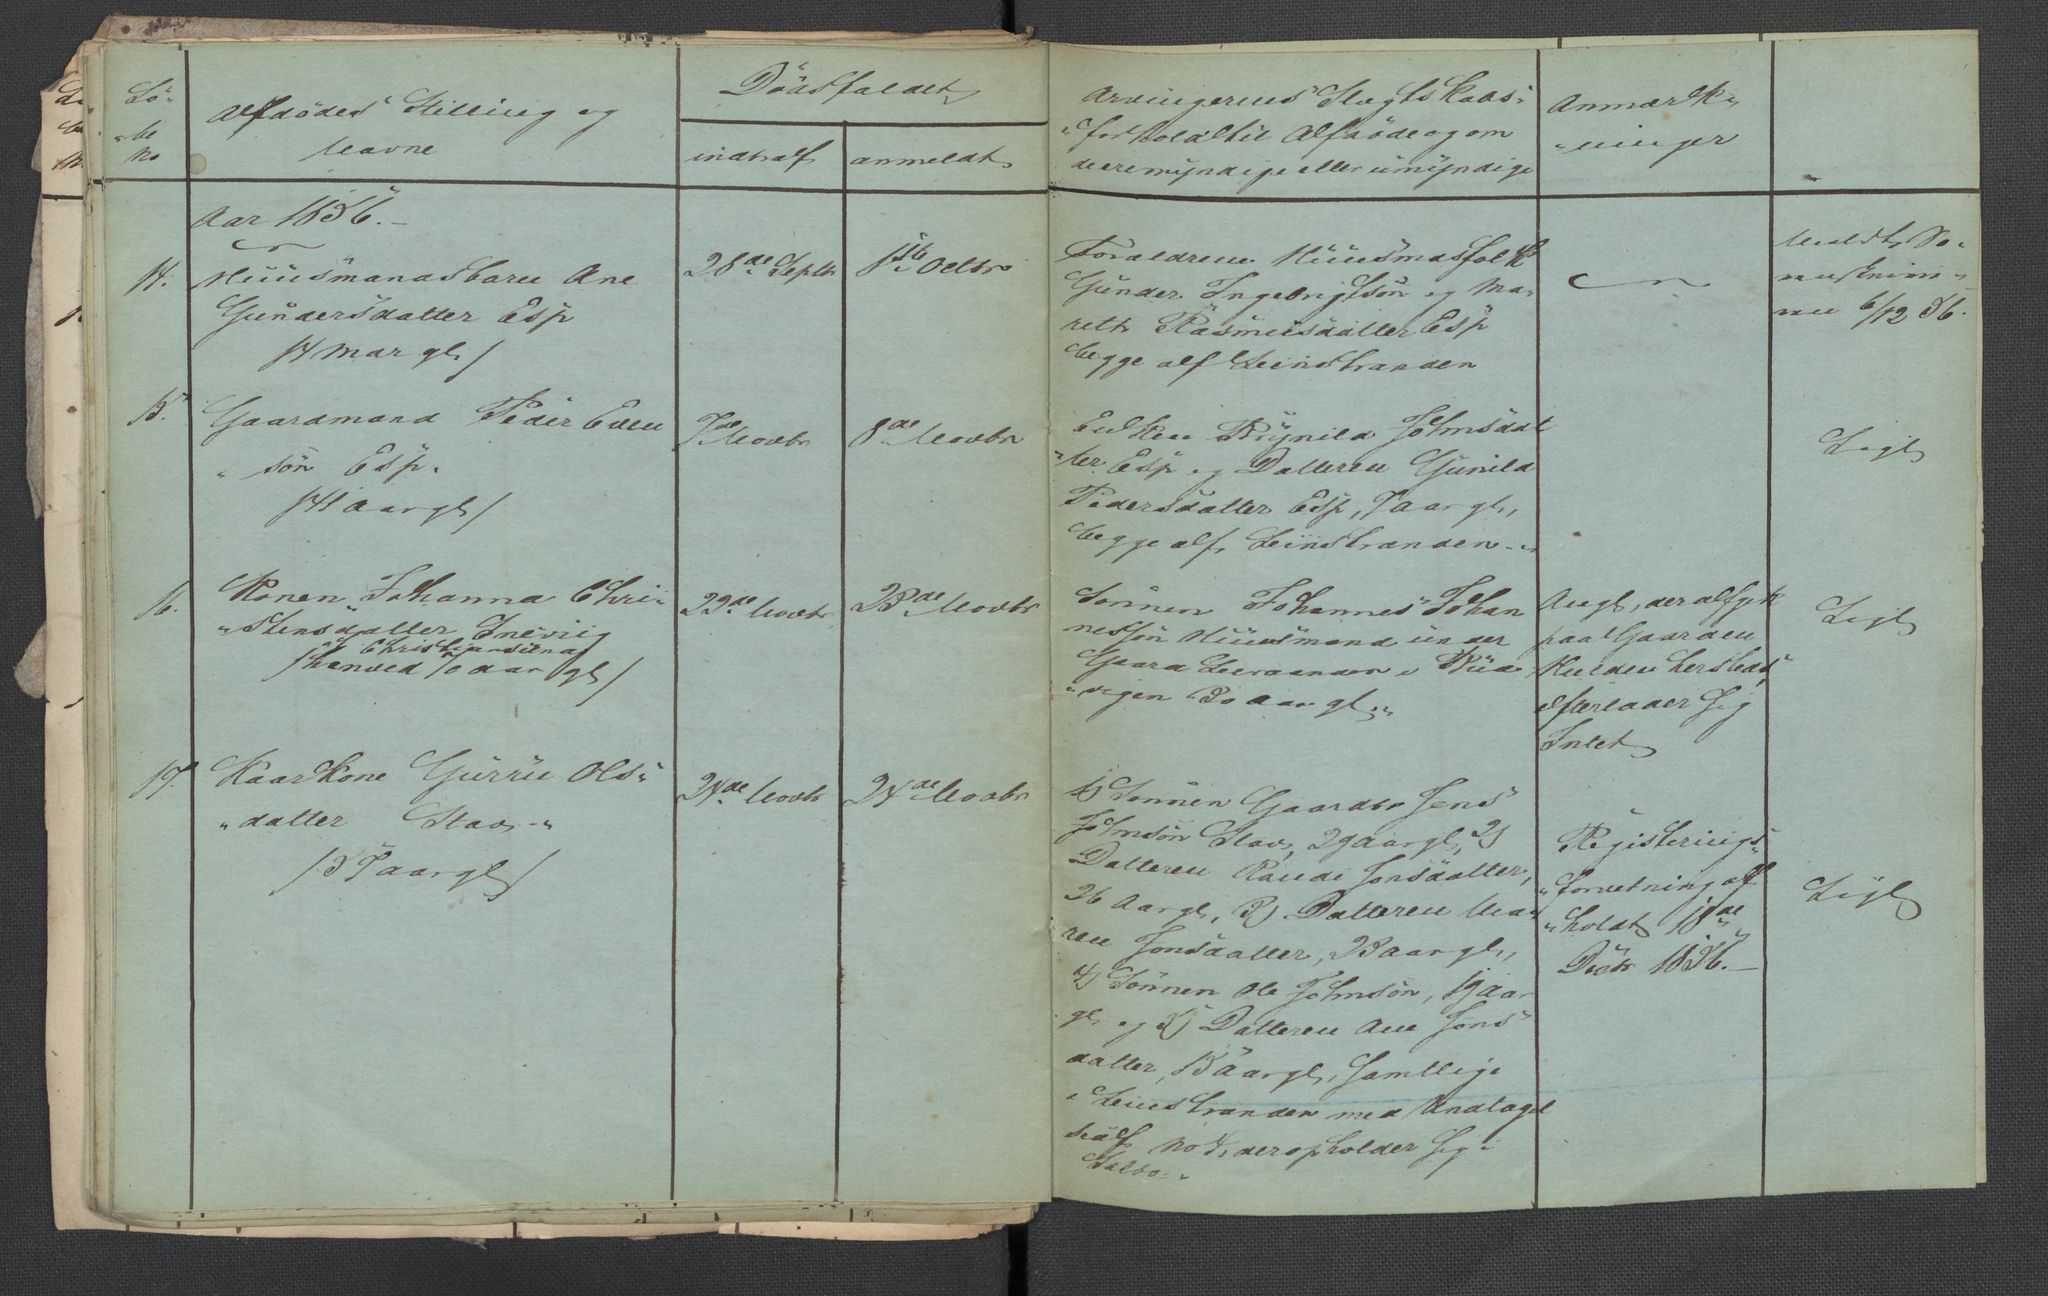 Lö-
be
No
Afdödes Stilling og
Navne
Dödsfaldet
indtraf
anmeldt
Arvingernes Slægtskabs-
"forhold til Afdöde og om
de ere myndige eller umyndige
Anmærk-
"ninger
Aar 1856.-
14.
Huusmandsbarn Ane
Gundersdatter Esp
/4 Mar gl/
28de Septbr
1ste Octbr
Forældrene Huusmandsfolk
Gunder Ingebrigtsön og Ma-
reth Rasmusdatter Esp
begge af Leinstranden
Meldt So-
renskriv-
ren 6/12 56.
15.
Gaardmand Peder Even
"sön Esp.
/41 aar gl/
7de Novbr
8de Novbr
Enken Brynild Johnsdat
"ter Esp og Datteren Gunild
Pedersdatter Esp, 7 aar gl,
begge af Leinstranden.-
Ligl
16.
Konen Johanna Chri-
"stensdatter Snevig
Christiansund
/henved 70 aar gl/
22de Novbr
23de Novbr
Sönnen Johannes Johan
nessön Huusmand under
Gaard Leeraanden i Bud
"vigen 30 aar gl."
Angl, der afgik
paa Gaarden
Kulden hersteds,
efterlader sig
Intet
Ligl
17.
Kaarkone Gurru Ols-
"datter Stav.-
/57 aar gl/
24de Novbr
24de Novbr
1) Sönnen Gaardbr Jens
Johnsön Stav, 29 aar gl, 2)
Datteren Randi Jonsdatter,
26 Aar gl, 3) Datteren Ma-
ren Jonsdatter, 23 aar gl,
4) Sönnen Ole Johnsön, 19 aar
gl, og 5) Datteren Ane Jons
datter, 13 aar gl, samtlige
i Leinstranden med Undtagel
se af No 4, der opholder sig i
Salbo.-
Registerings-
"forretning af
"holdt 18de
Decbr 1856.-
Ligl